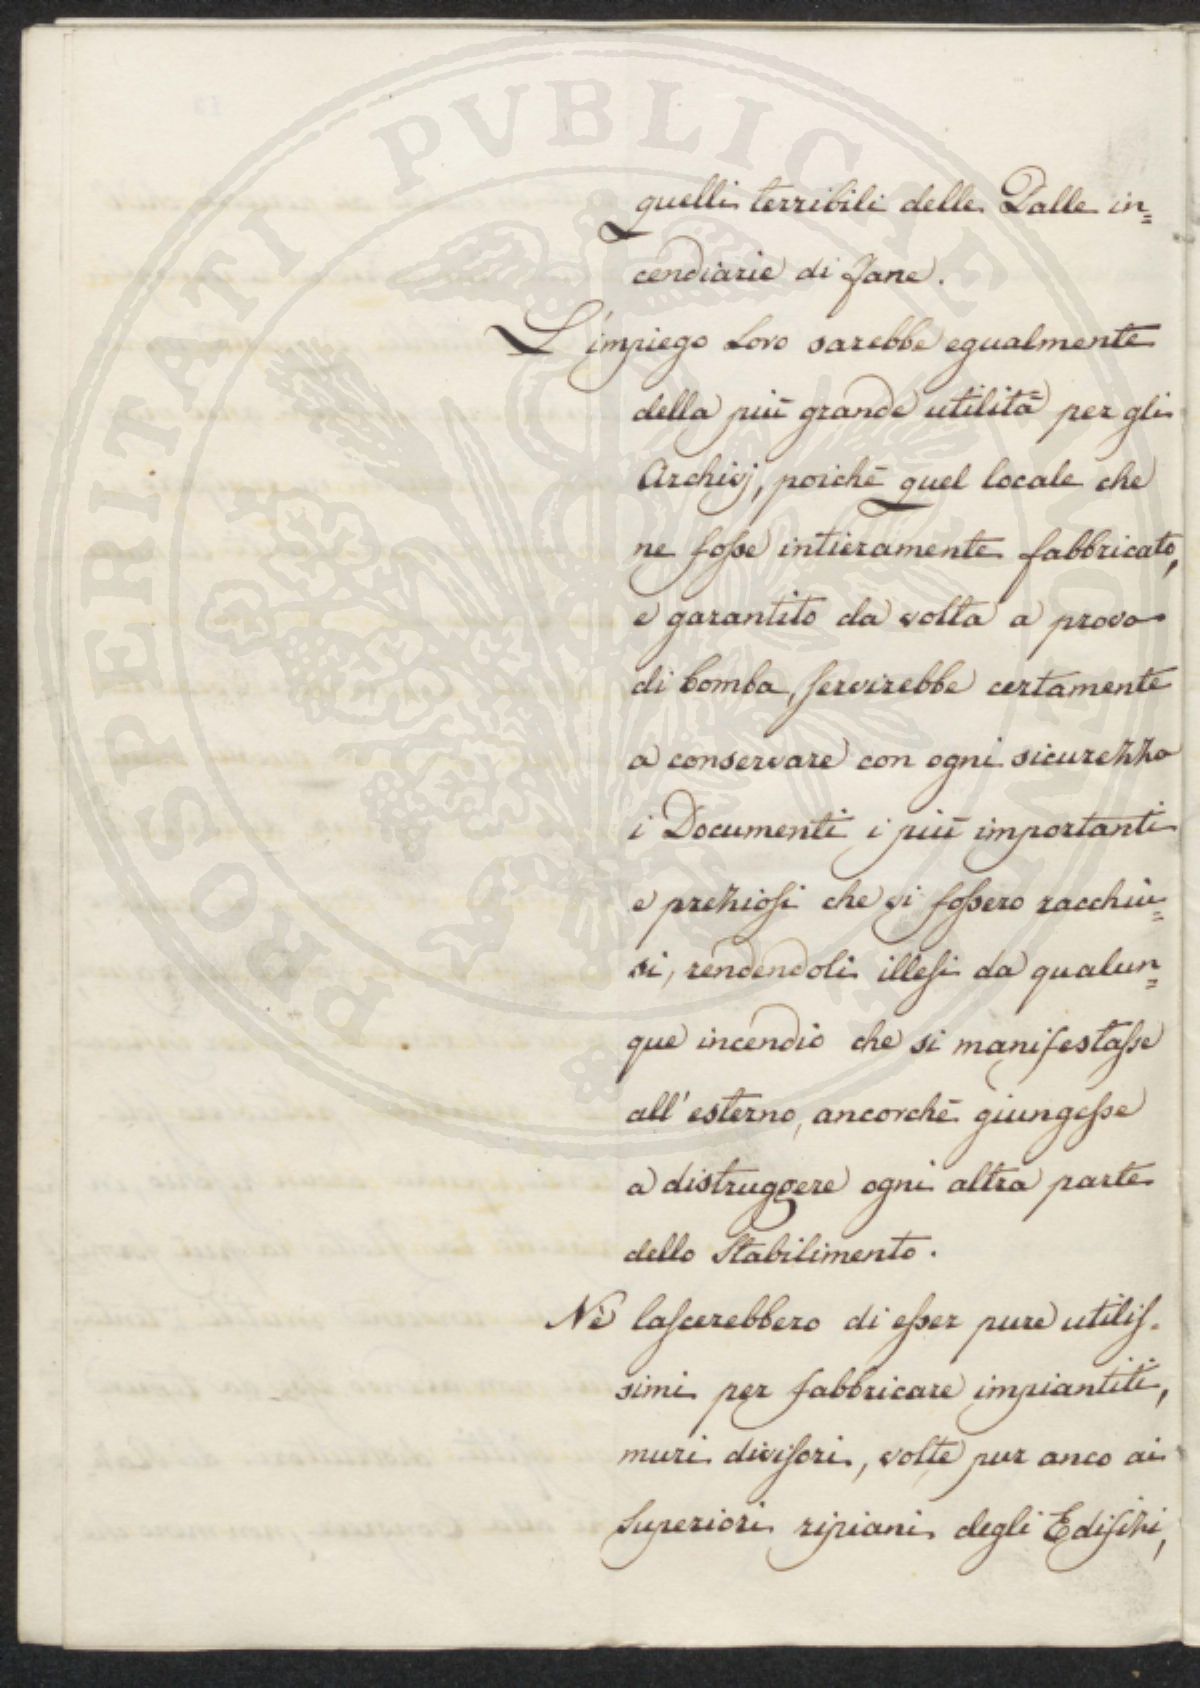 PROSPERITATI PUBLICAE AUGENDAE
quelli terribili delle Palle in=
cendiarie di Jane.
L'impiego Loro sarebbe egualmente
della più grande utilità per gli
Archivj, poichè quel locale che
ne fosse intieramente fabbricato,
e garantito da volta a prova
di bomba, servirebbe certamente
a conservare con ogni sicurezza
i Documenti i più importanti
e preziosi che vi fossero racchiu=
si, rendendoli illesi da qualun=
que incendio che si manifestasse
all'esterno, ancorchè giungesse
a distruggere ogni altra parte
dello Stabilimento.
Nè lascerebbero di esser pure utilis.
simi per fabbricare impiantiti,
muri divisori, volte pur anco ai
superiori ripiani degli Edifizi,